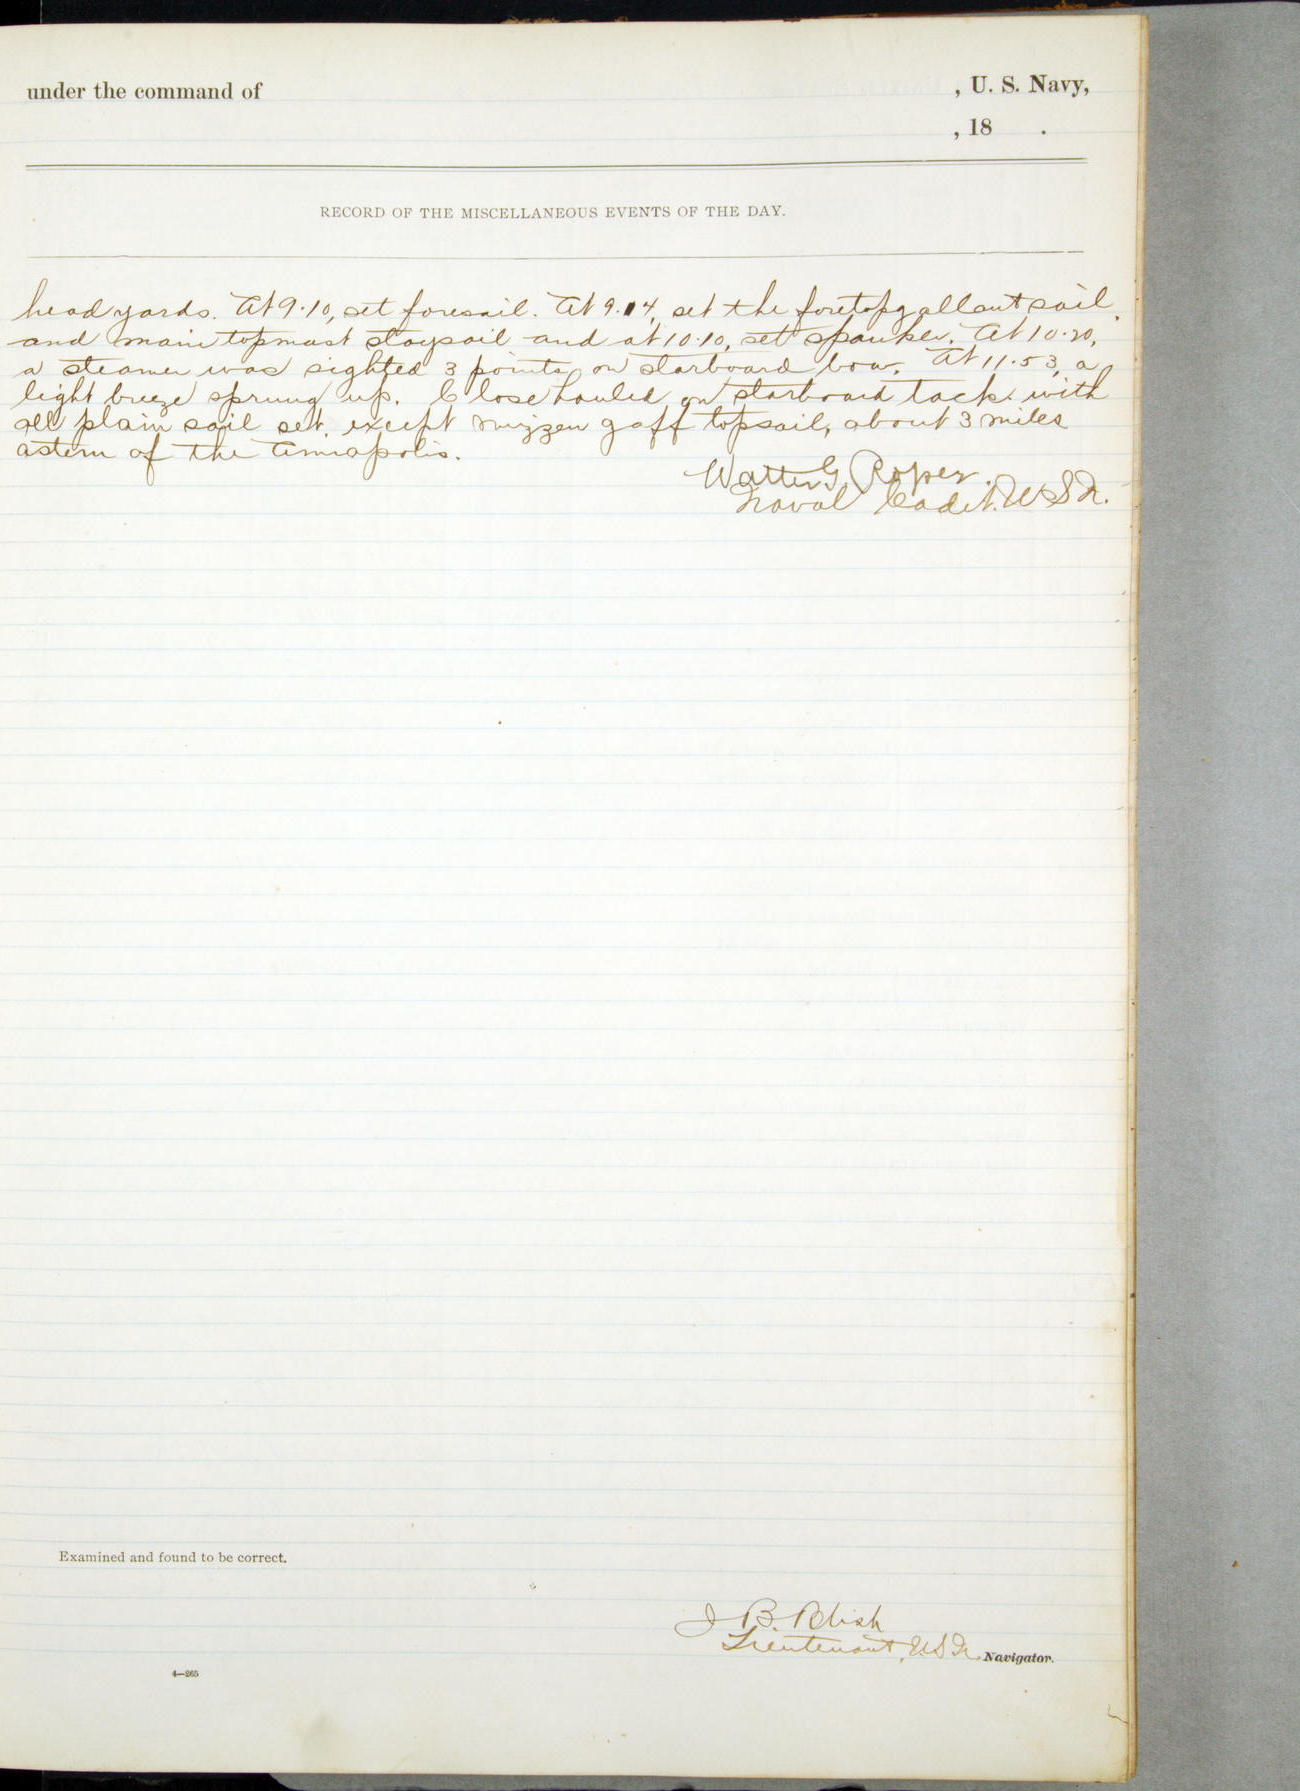 under the command of , U. S. Navy,
, 18 .
RECORD OF THE MISCELLANEOUS EVENTS OF THE DAY.
head yards. At 9·10, set foresail. At 9.14, set the foretopgallantsail
and main topmast staysail and at 10·10, set spanker. At 10·20,
a steamer was sighted 3 points on starboard bow. At 11·53, a
light breeze sprung up. Closehauled on starboard tack with
all plain sail set, except mizzen gaff topsail, about 3 miles
astern of the Annapolis.
Walter G Roper.
Naval Cadet. U S N.
Examined and found to be correct.
J B. Blish
Lieutenant, U S N. Navigator.
4—265